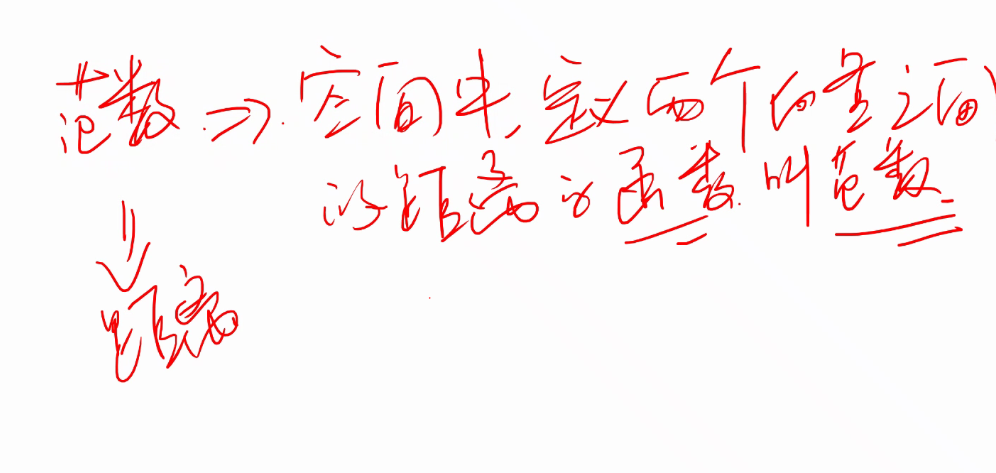 范数 => 空间中,定义两个向量之间
的距离的函数叫范数
距离